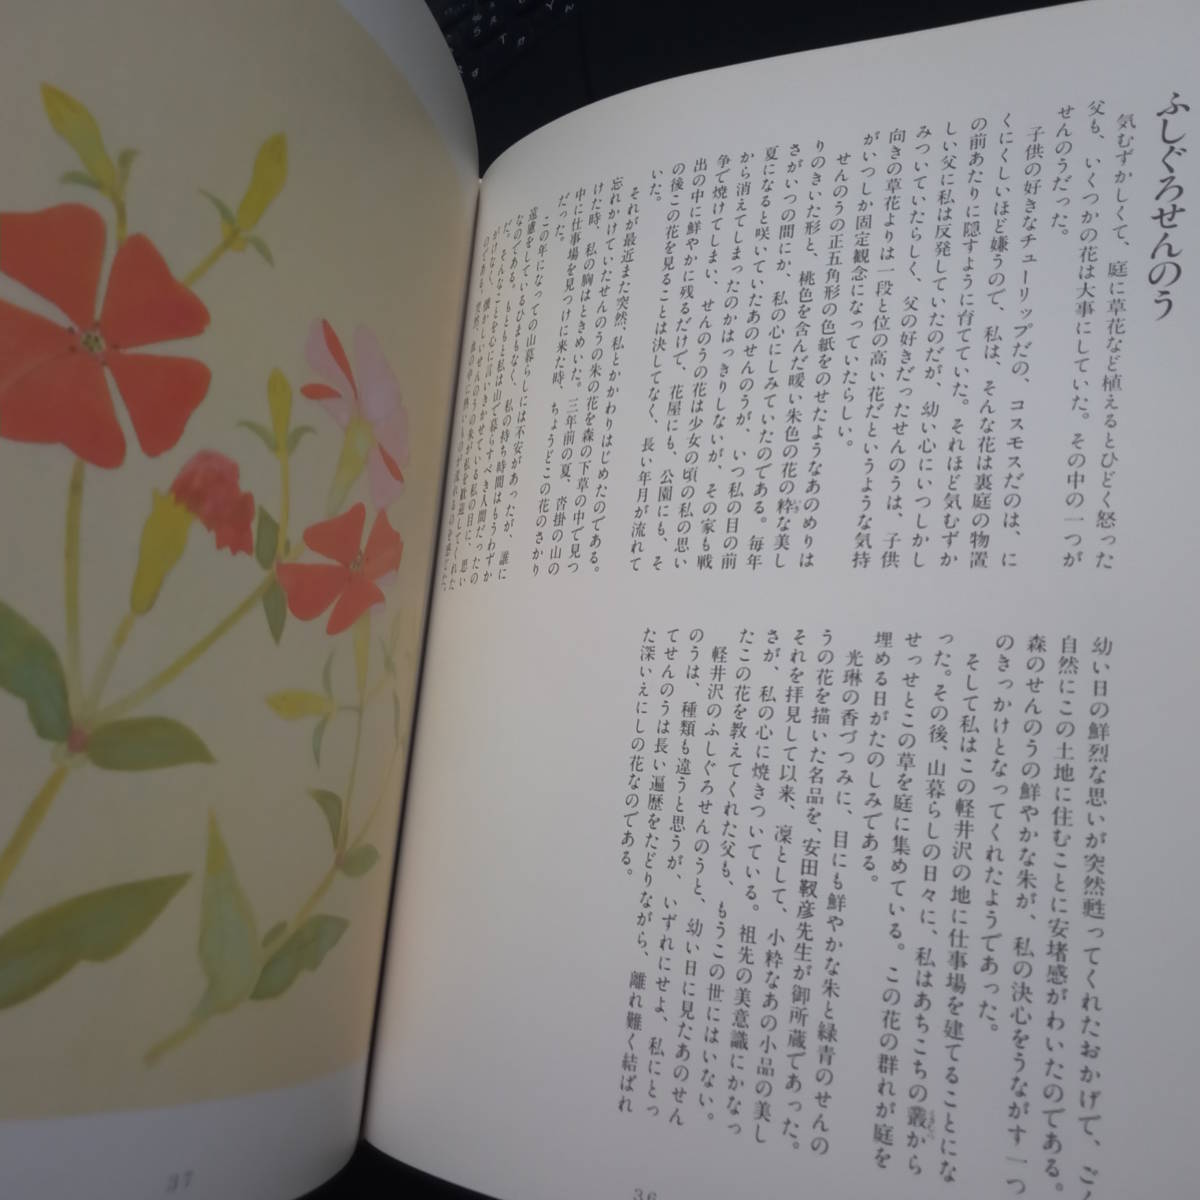 ふしぐろせんのう
気むずかしくて、庭に草花など植えるとひどく怒った
父も、いくつかの花は大事にしていた。その中の一つが
せんのうだった。
子供の好きなチューリップだの、コスモスだのは、に
くにくしいほど嫌うので、私は、そんな花は裏庭の物置
の前あたりに隠すように育てていた。それほど気むずか
しい父に私は反発していたのだが、幼い心にいつしかし
みついていたらしく、父の好きだったせんのうは、子供
向きの草花よりは一段と位の高い花だというような気持
がいつしか固定観念になっていたらしい。
せんのうの正五角形の色紙をのせたようなあのめりは
りのきいた形と、桃色を含んだ暖い朱色の花の粋な美し
さがいつの間にか、私の心にしみていたのである。毎年
夏になると咲いていたあのせんのうが、いつ私の目の前
から消えてしまったのかはっきりしないが、その家も戦
争で焼けてしまい、せんのうの花は少女の頃の私の思い
出の中に鮮やかに残るだけで、花屋にも、公園にも、そ
の後この花を見ることは決してなく、長い年月が流れて
いた。
それが最近また突然、私とかかわりはじめたのである。
忘れかけていたせんのうの朱の花を森の下草の中で見つ
けた時、私の胸はときめいた。三年前の夏、沓掛の山の
中に仕事場を見つけに来た時、ちょうどこの花のさかり
だった。
この年になっての山暮らしには不安があったが、誰に
遠慮をしているひまもなく、私の持ち時間はもうわずか
なのである。もともと私は山で暮らすべき人間だったの
だ。そんなことを心に言いきかせている私の目に、思い
がけなく、懐かしいせんのうの朱が私を歓迎してくれた
のである。突然、
幼い日の鮮烈な思いが突然甦ってくれたおかげで、ごく
自然にこの土地に住むことに安堵感がわいたのである。
森のせんのうの鮮やかな朱が、私の決心をうながす一つ
のきっかけとなってくれたようであった。
そして私はこの軽井沢の地に仕事場を建てることにな
った。その後、山暮らしの日々に、私はあちこちの叢から
せっせとこの草を庭に集めている。この花の群れが庭を
埋める日がたのしみである。
光琳の香づつみに、目にも鮮やかな朱と緑青のせんの
うの花を描いた名品を、安田靫彦先生が御所蔵であった。
それを拝見して以来、凜として、小粋なあの小品の美し
さが、私の心に焼きついている。祖先の美意識にかなっ
たこの花を教えてくれた父も、もうこの世にはいない。
軽井沢のふしぐろせんのうと、幼い日に見たあのせん
のうは、種類も違うと思うが、いずれにせよ、私にとっ
てせんのうは長い遍歴をたどりながら、離れ難く結ばれ
た深いえにしの花なのである。
36
37